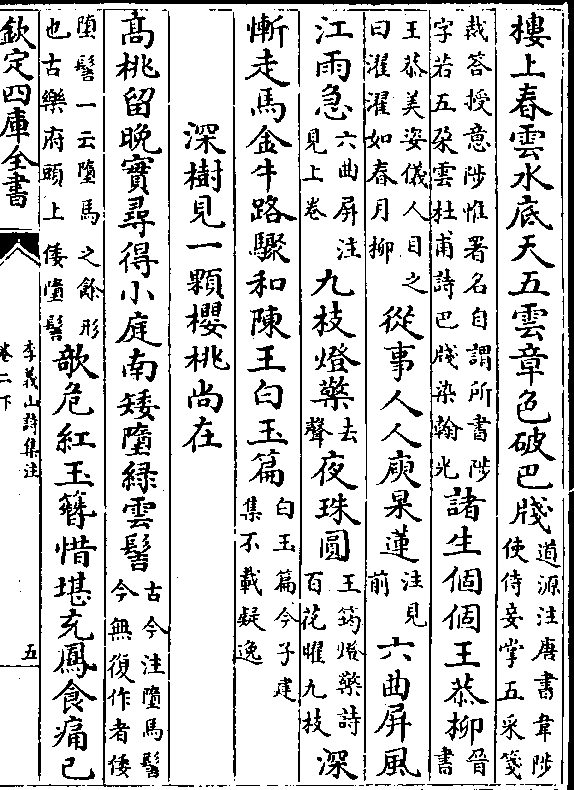 樓上春雲水底天五雲章色破巴牋道源注唐書韋陟使侍妾掌五采箋
裁答授意陟惟署名自謂所書陟字若五朶雲杜甫詩巴牋染翰光諸生個個王恭柳晉書
王恭美姿儀人目之曰濯濯如春月柳從事人人庾杲蓮注見前六曲屏風
江雨急六曲屏注見上卷九枝燈檠去聲夜珠圓王筠燈檠詩百花曜九枝深
慚走馬金牛路驟和陳王白玉篇白玉篇今子建集不載疑逸
深樹見一顆櫻桃尚在
髙桃留晚實尋得小庭南矮墮緑雲髻古今注墮馬髻今無復作者倭
墮髻一云墮馬之餘形也古樂府頭上倭墮髻欹危紅玉簪惜堪充鳳食痛已
欽定四庫全書
李義山詩集注
卷二下
五